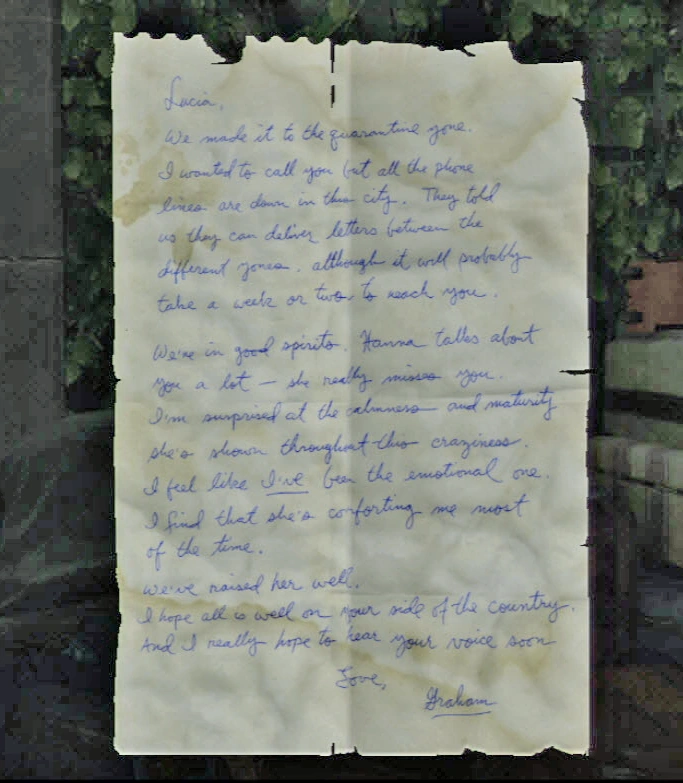 Lucia,
We made it to the quarantine zone.
I wanted to call you but all the phone
lines are down in this city. They told
us they can deliver letters between the
different zones, although it will probably
take a week or two to reach you.
We're in good spirits. Hanna talks about
you a lot — she really misses you.
I'm surprised at the calmness and maturity
she's shown throughout this craziness.
I feel like I've been the emotional one.
I find that she's comforting me most
of the time.
We've raised her well.
I hope all is well on your side of the country.
And I really hope to hear your voice soon
Love,
Graham